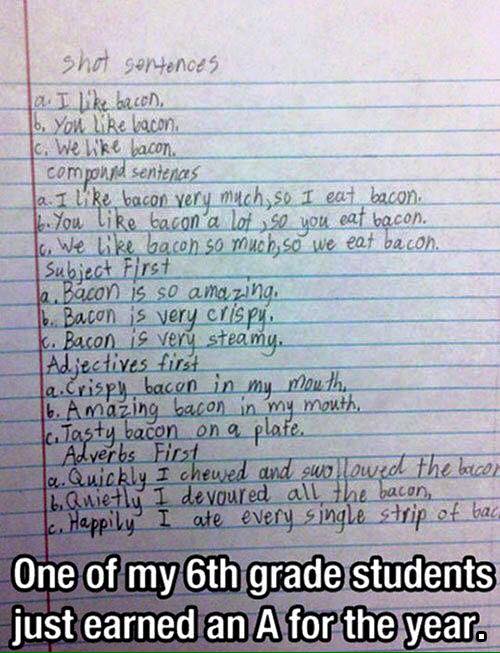 shot sentences
a. I like bacon.
b. You like bacon.
c. We like bacon.
compound sentences
a. I like bacon very much, so I eat bacon.
b. You like bacon a lot, so you eat bacon.
c. We like bacon so much, so we eat bacon.
Subject First
a. Bacon is so amazing.
b. Bacon is very crispy.
c. Bacon is very steamy.
Adjectives first
a. Crispy bacon in my mouth.
b. Amazing bacon in my mouth.
c. Tasty bacon on a plate.
Adverbs First
a. Quickly I chewed and swollowed the bacon
b. Quietly I devoured all the bacon,
c. Happily I ate every single strip of bac
One of my 6th grade students
just earned an A for the year.